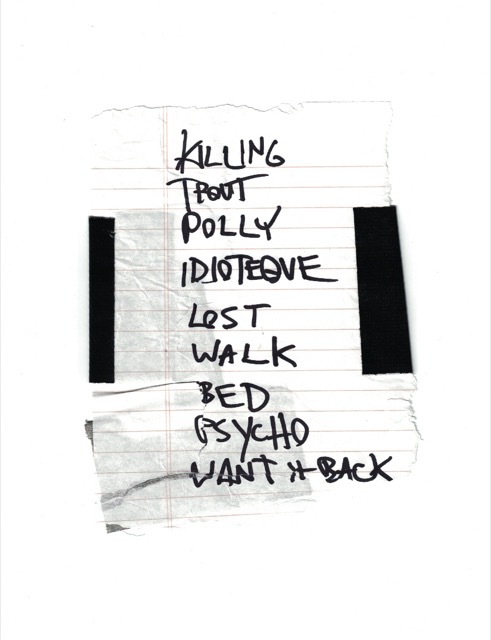 KILLING
TROUT
POLLY
IDIOTEQUE
LOST
WALK
BED
PSYCHO
WANT it BACK